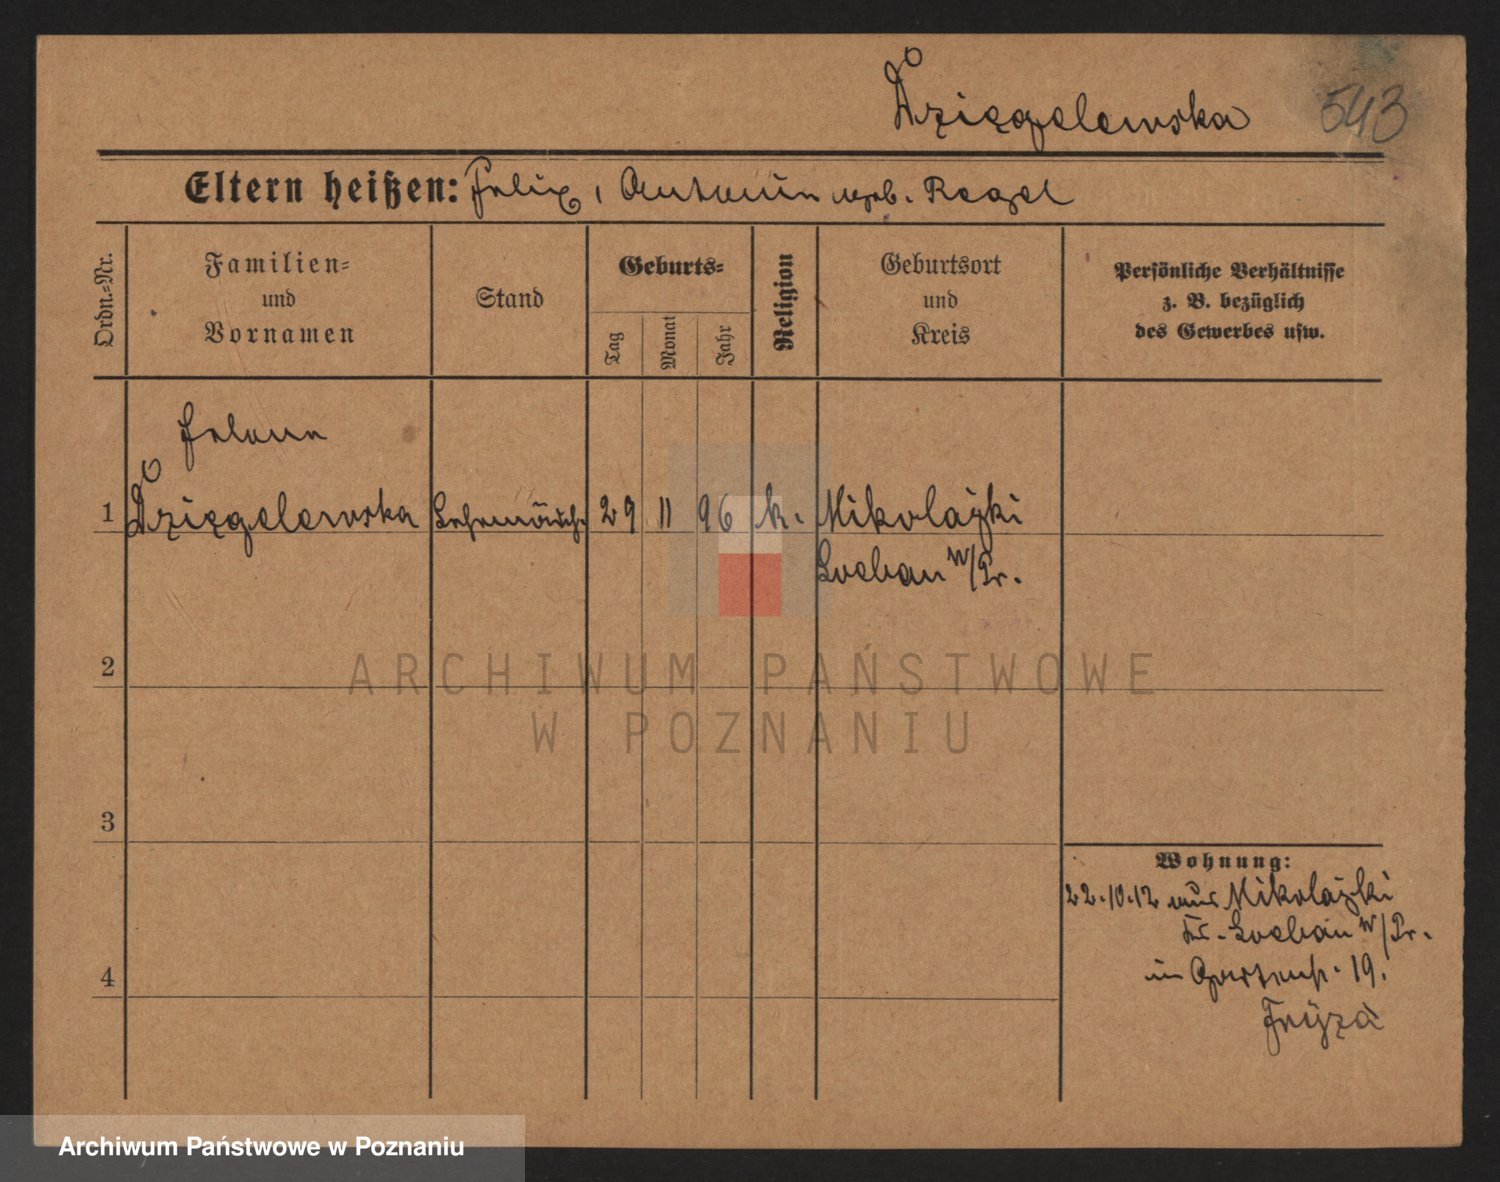 Dzięgelewska 543
Eltern heißen: Felix, Antonina geb. Regel
Ordn.-Nr.
Familien-
und
Vornamen
Stand
Geburts-
Tag
Monat
Jahr
Religion
Geburtsort
und
Kreis
Persönliche Verhältnisse
z. B. bezüglich
des Gewerbes usw.
Helena
1 Dzięgelewska Lehrmädch. 29 11 96 k. Mikolajki
Loebau W/Pr.
2
3
4
Wohnung:
22.10.12 aus Mikolajki
Kr. Loebau W/Pr.
in 19.
ARCHIWUM PAŃSTWOWE
W POZNANIU
Archiwum Państwowe w Poznaniu